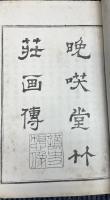 晚咲堂竹
莊画傳